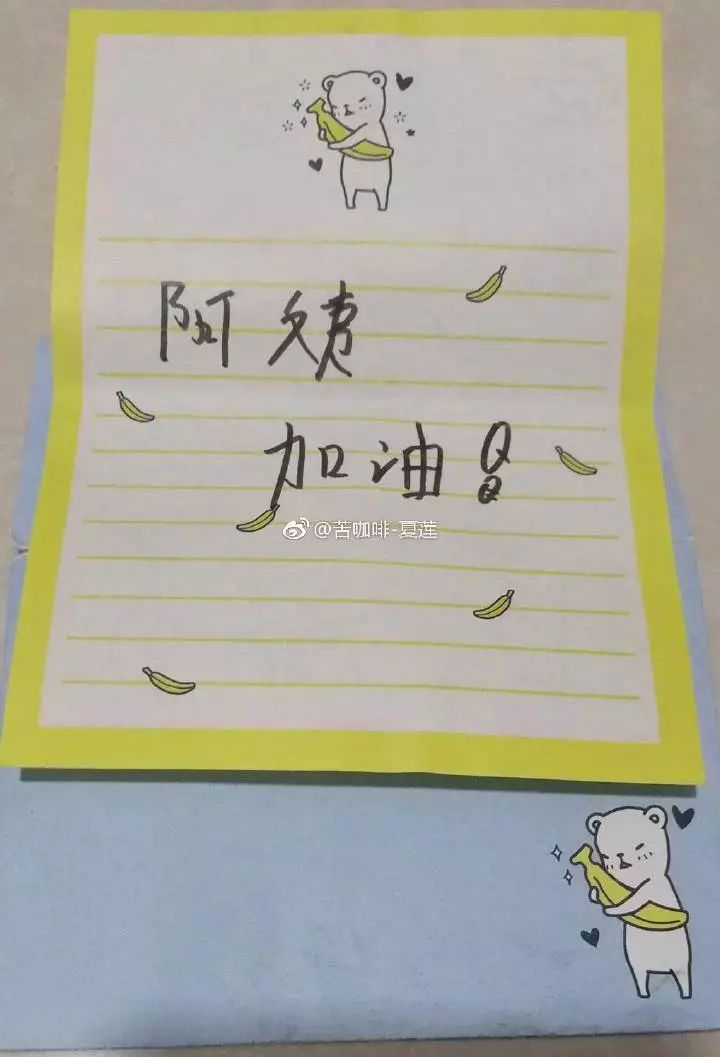 阿姨
加油！
@苦咖啡-夏莲